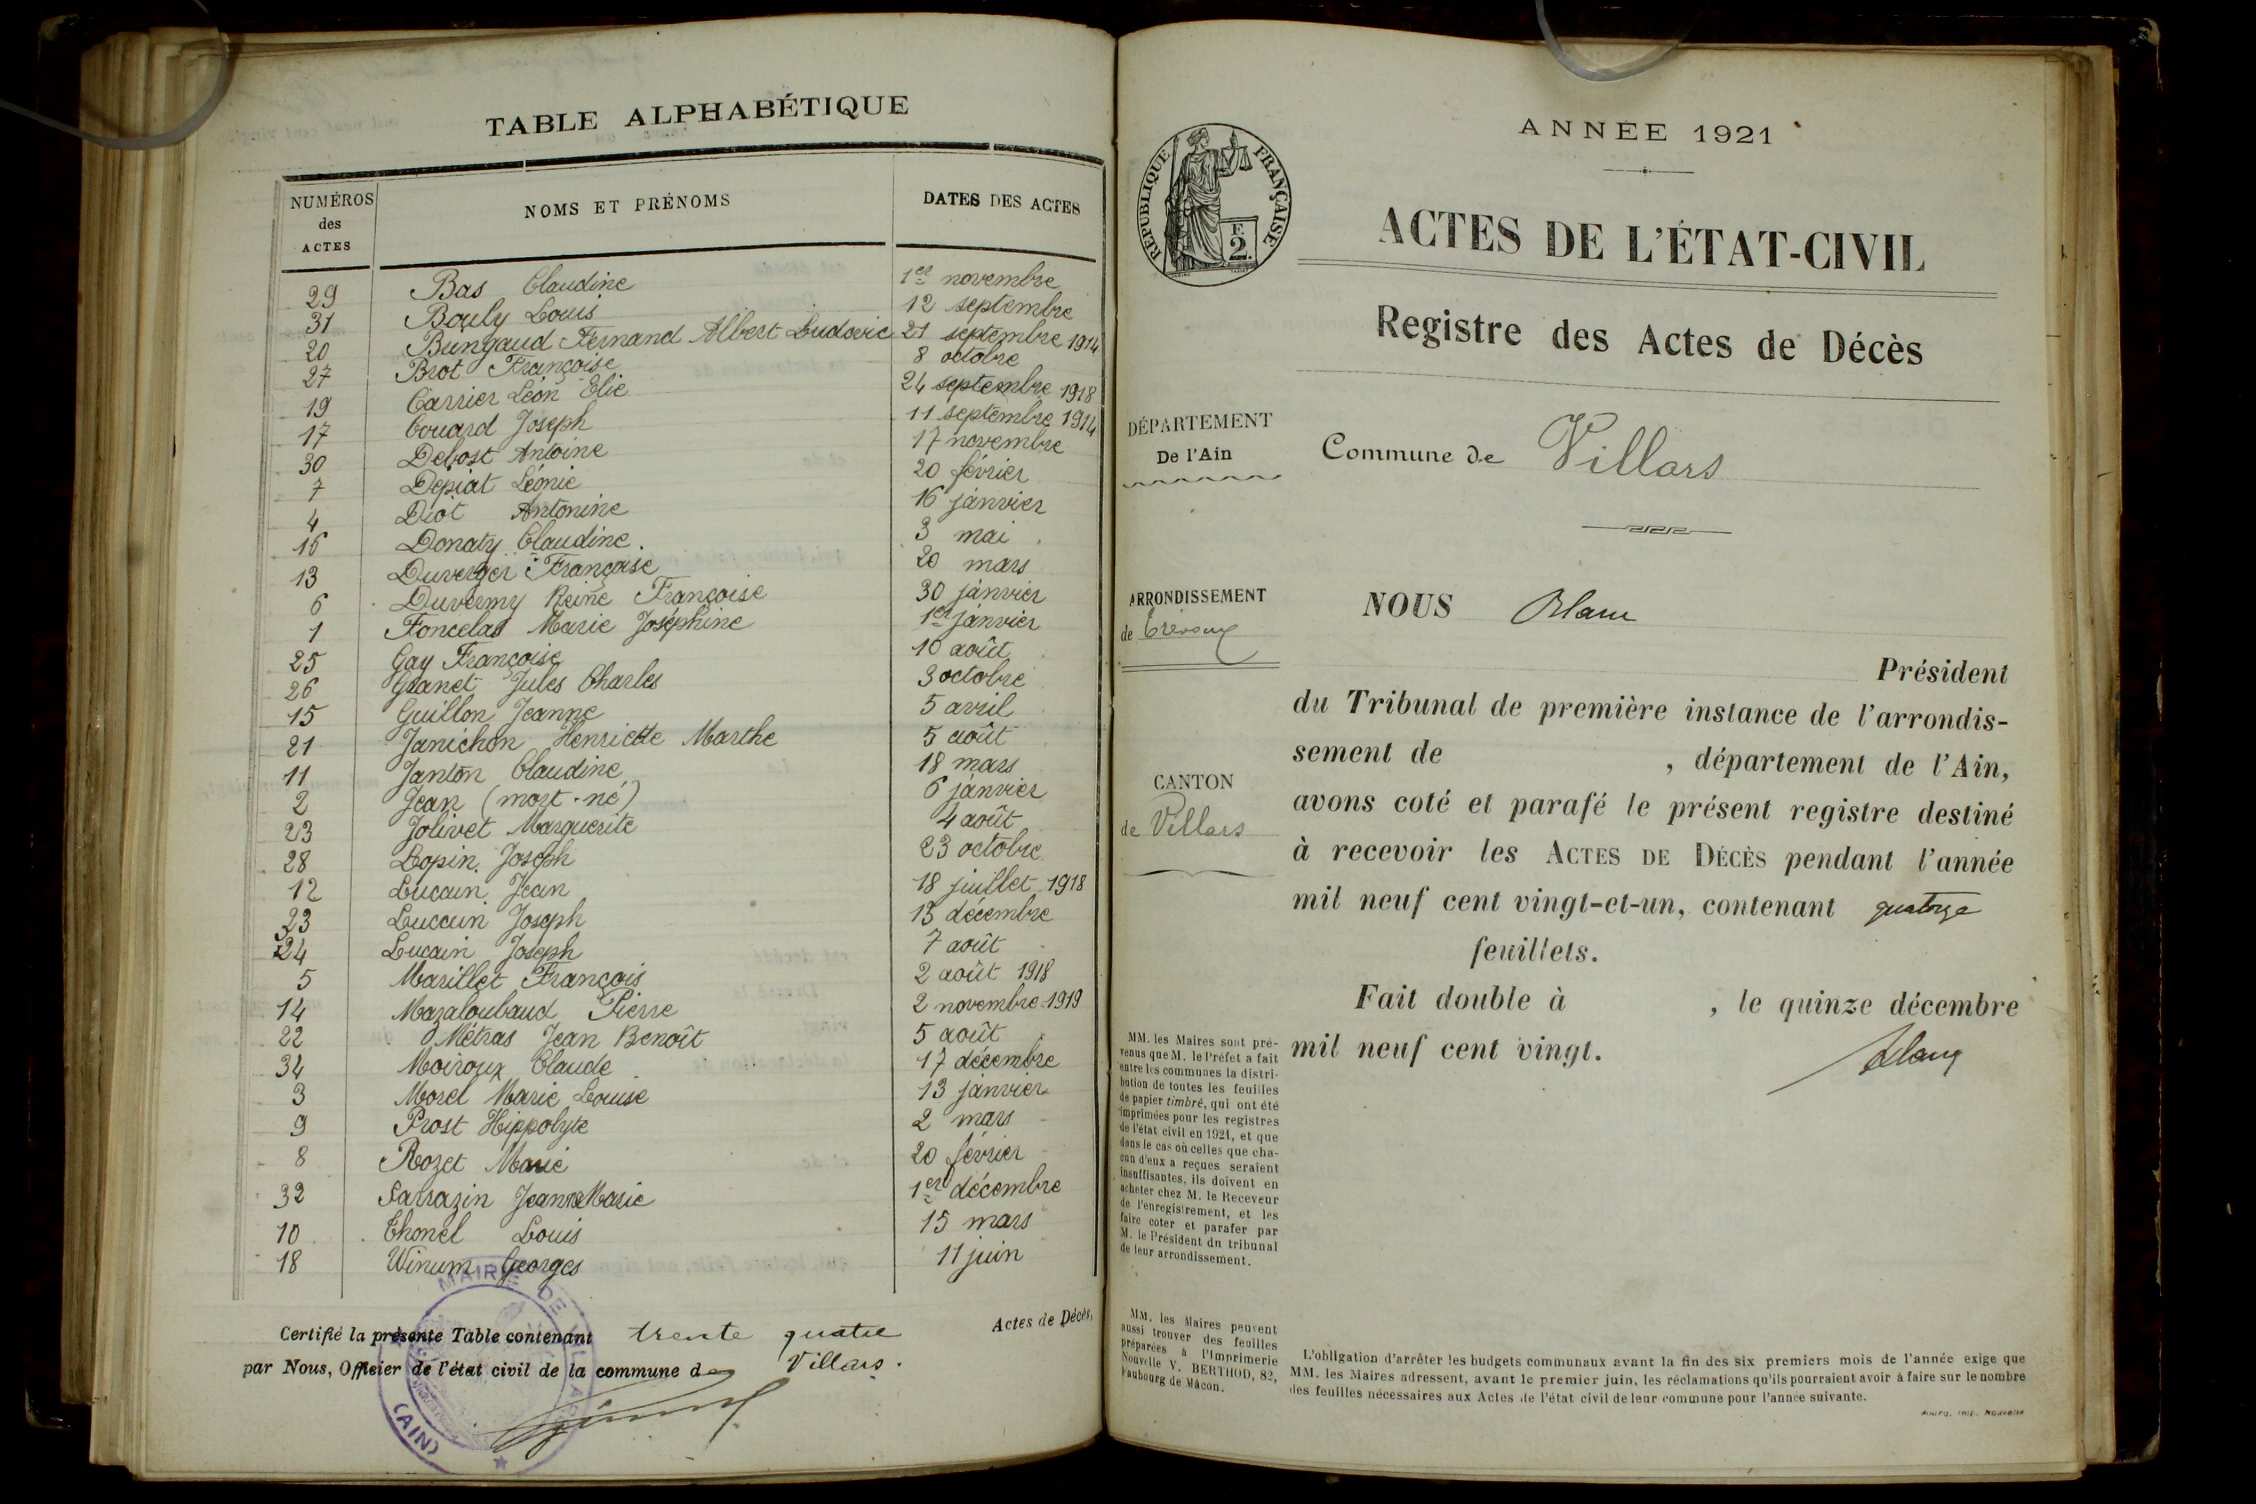 TABLE ALPHABÉTIQUE
NUMÉROS des ACTES
NOMS ET PRÉNOMS
DATES DES ACTES
29 Bas Claudine 1er novembre
31 Bouly Louis 12 septembre
20 Bungaud Fernand Albert Ludovic 21 septembre 1914
27 Brot Françoise 8 octobre
19 Carrier Léon Elie 24 septembre 1918
17 Couard Joseph 11 septembre 1914
30 Debost Antoine 17 novembre
7 Depiat Léonie 20 février
4 Diot Antonine 16 janvier
16 Donaty Claudine 3 mai
13 Duverger Françoise 20 mars
6 Duvermy Reine Françoise 30 janvier
1 Foncelas Marie Joséphine 1er janvier
25 Gay Françoise 10 août
26 Granet Jules Charles 3 octobre
15 Guillon Jeanne 5 avril
21 Janichon Henriette Marthe 5 août
11 Janton Claudine 18 mars
2 Jean (mort-né) 6 janvier
23 Jolivet Marguerite 4 août
28 Lopin Joseph 23 octobre
12 Lucain Jean 18 juillet 1918
Luccain Joseph 13 décembre
24 Lucain Joseph 7 août
5 Marillet François 2 août 1918
14 Mazaloubaud Pierre 2 novembre 1919
22 Métras Jean Benoît 5 août
34 Moiroux Claude 17 décembre
3 Morel Marie Louise 13 janvier
9 Prost Hippolyte 2 mars
8 Rozet Marie 20 février
32 Sarrazin Jeanne Marie 1er décembre
10 Thonel Louis 15 mars
18 Winum Georges 11 juin
Certifié la présente Table contenant trente quatre Actes de Décès,
par Nous, Officier de l'état civil de la commune de Villars.
MAIRIE DE VILLARS
(AIN)
ANNÉE 1921
RÉPUBLIQUE FRANÇAISE
F.
2.
ACTES DE L'ÉTAT-CIVIL
Registre des Actes de Décès
DÉPARTEMENT
De l'Ain
Commune de Villars
ARRONDISSEMENT
de Trévoux
CANTON
de Villars
NOUS Blanc
Président
du Tribunal de première instance de l'arrondis-
sement de , département de l'Ain,
avons coté et parafé le présent registre destiné
à recevoir les ACTES DE DÉCÈS pendant l'année
mil neuf cent vingt-et-un, contenant quatorze
feuillets.
Fait double à , le quinze décembre
mil neuf cent vingt.
Blanc
MM. les Maires sont pré-
venus que M. le Préfet a fait
entre les communes la distri-
bution de toutes les feuilles
de papier timbré, qui ont été
imprimées pour les registres
de l'état civil en 1921, et que
dans le cas où celles que cha-
cun d'eux a reçues seraient
insuffisantes, ils doivent en
acheter chez M. le Receveur
de l'enregistrement, et les
faire coter et parafer par
M. le Président du tribunal
de leur arrondissement.
MM. les Maires peuvent
aussi trouver des feuilles
préparées à l'Imprimerie
Nouvelle V. BERTHOD, 82,
Faubourg de Mâcon.
L'obligation d'arrêter les budgets communaux avant la fin des six premiers mois de l'année exige que
MM. les Maires adressent, avant le premier juin, les réclamations qu'ils pourraient avoir à faire sur le nombre
des feuilles nécessaires aux Actes de l'état civil de leur commune pour l'année suivante.
Bourg, Imp. Nouvelle